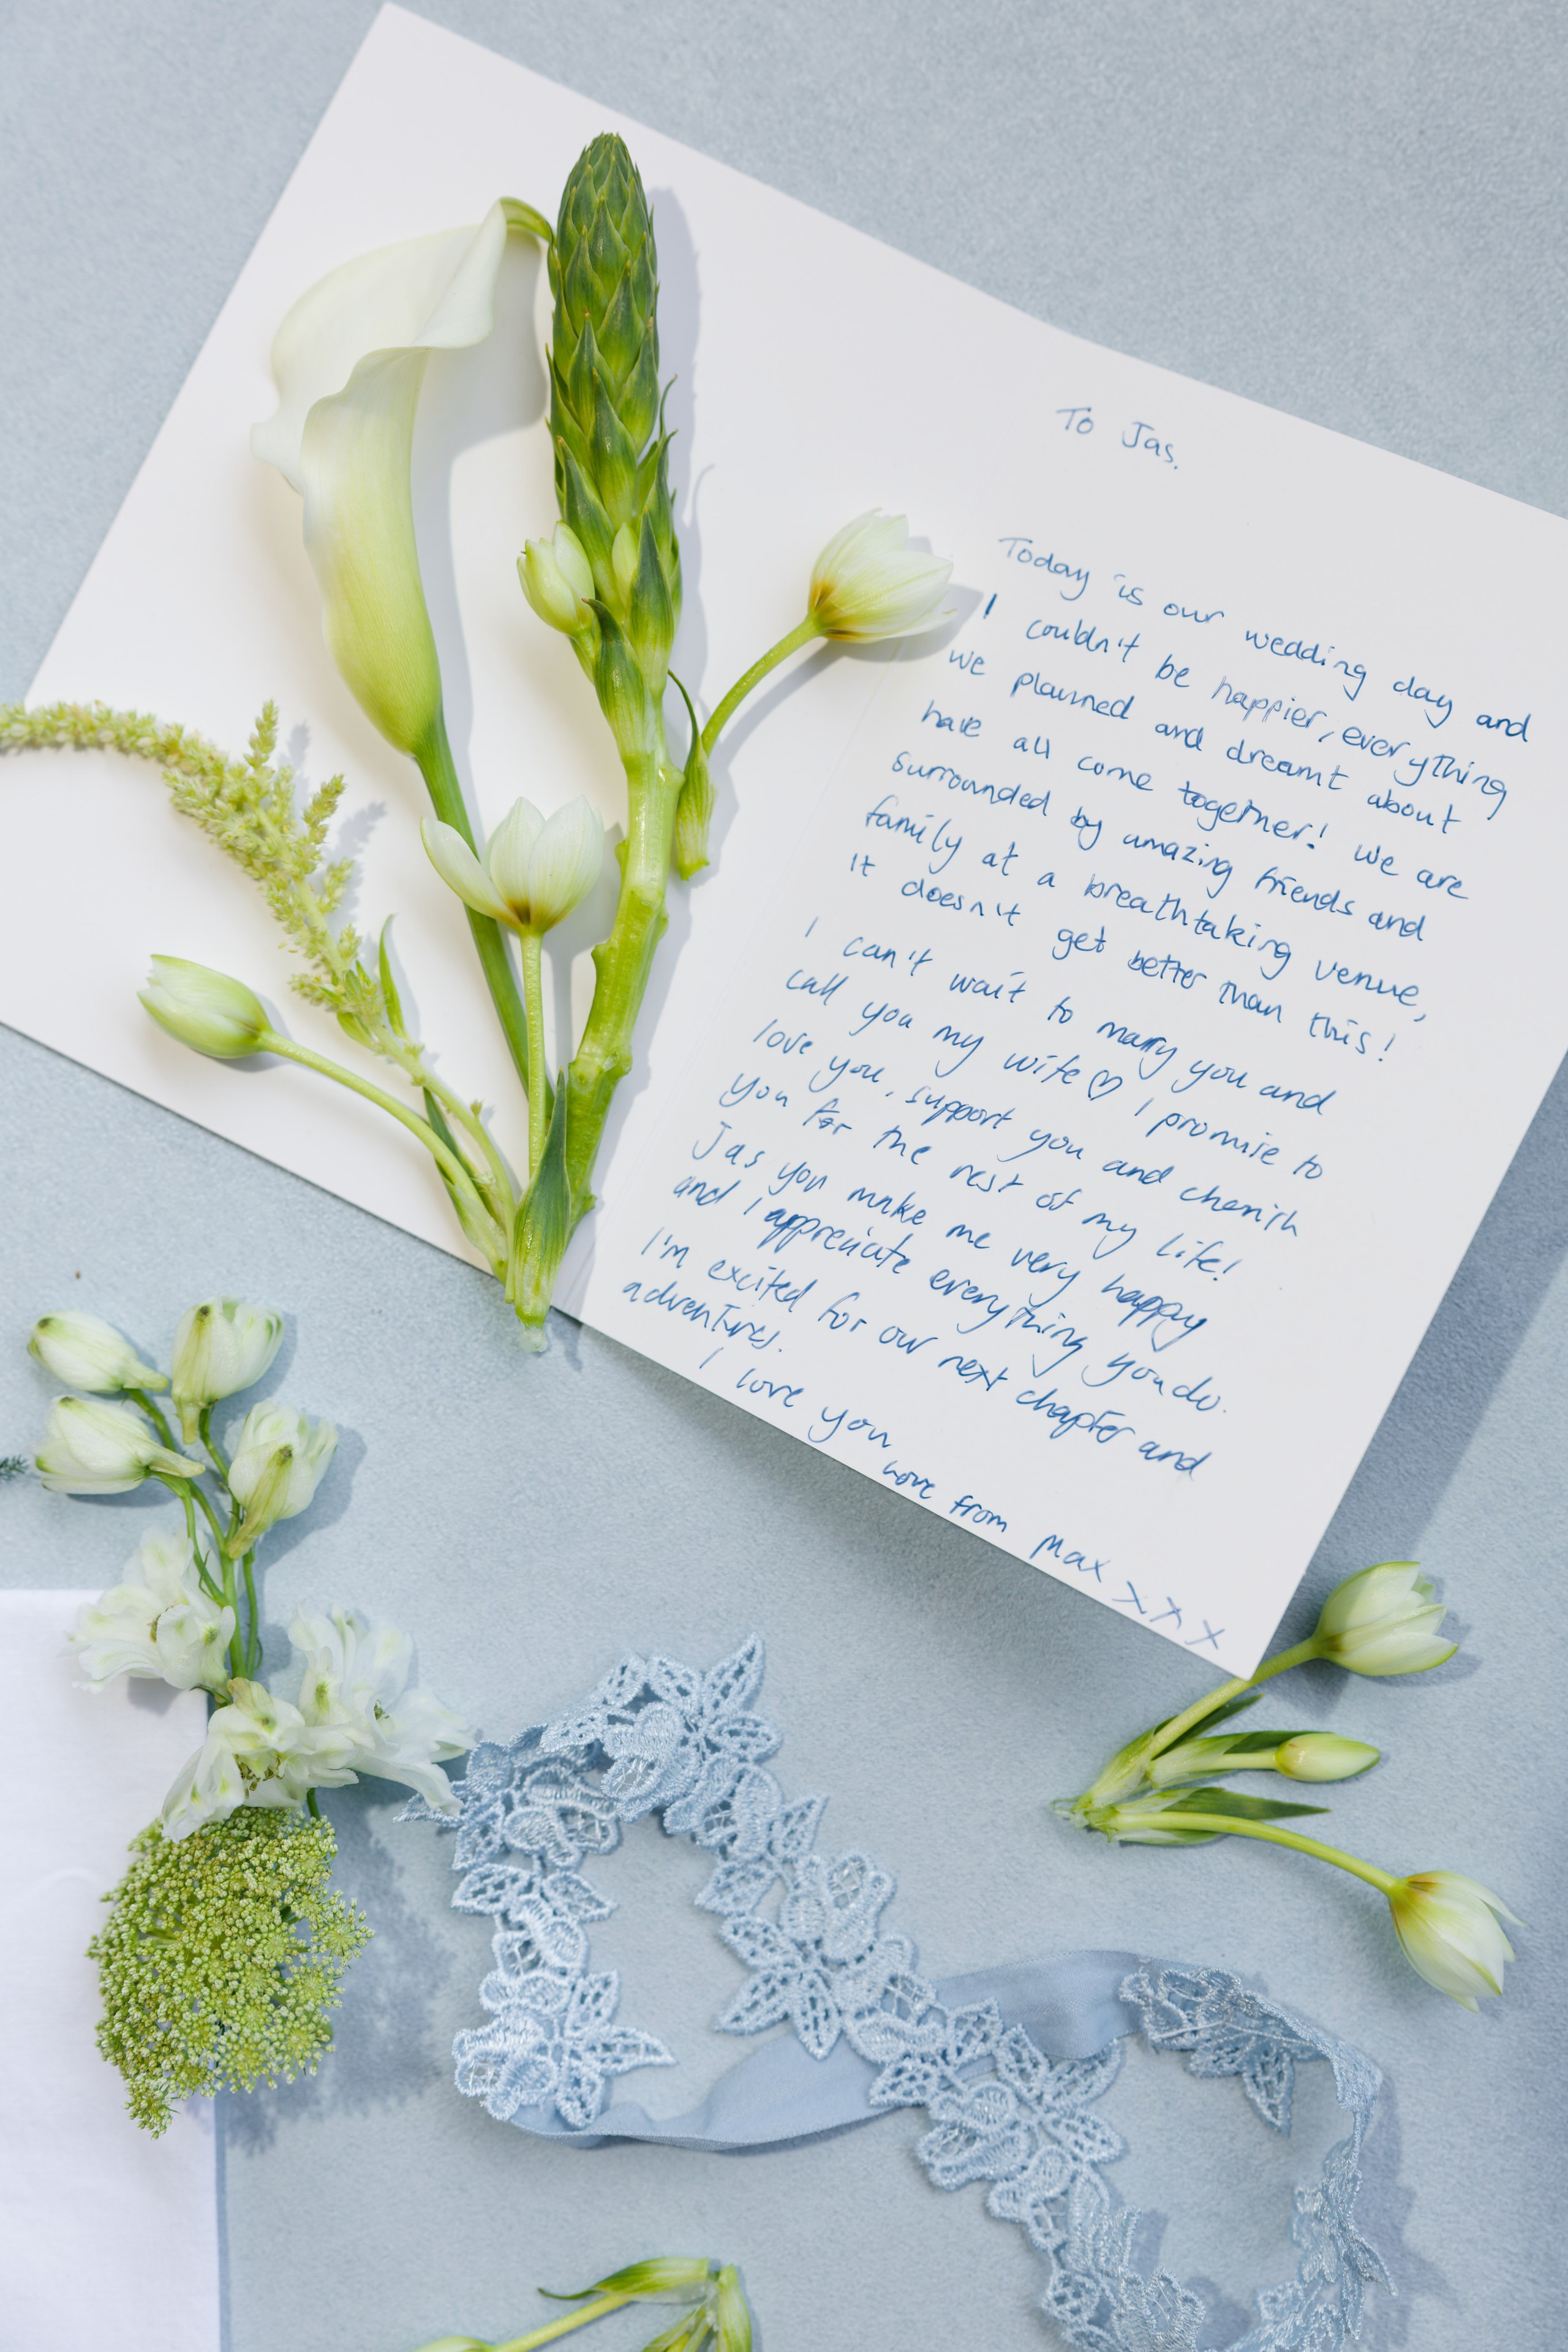 To Jas.
Today is our wedding day and
I couldn't be happier, everything
we planned and dreamt about
have all come together! We are
surrounded by amazing friends and
family at a breathtaking venue,
It doesn't get better than this!
I can't wait to marry you and
call you my wife♡ I promise to
love you, support you and cherish
you for the rest of my life!
Jas you make me very happy
and I appreciate everything you do.
I'm excited for our next chapter and
adventures.
I love you
Love from Max XXX